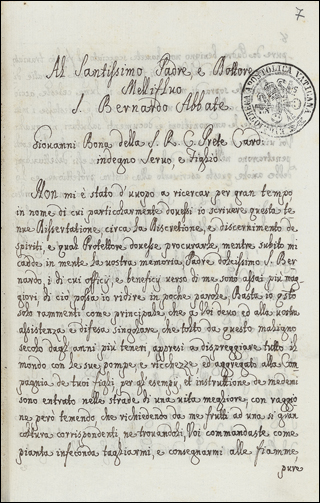 7
Al Santissimo Padre, e Dottore
Mellifluo
S. Bernardo Abbate.
BIBLIOTECA APOSTOLICA VATICANA
Giovanni Bona della S. R. C. Prete Card.
indegno Servo e Figlio
Non mi è stato d'uuopo a ricercar per gran tempo
in nome di cui particolarmente douessi io scriuere questa te
nue Dissertatione circa la Discretione, e discernimento de
spiriti, e qual Protettore douesse procurarle, mentre subito mi
cadde in mente la vostra memoria Padre dolcissimo S. Ber
nardo, i di cui officij e beneficij verso di me sono assai più mag
giori, di ciò possa io ridire in poche parole. Basta io
solo rammenti come principale, che a Voi deuo ed alla vostra
assistenza e difesa singolare, che tolto da questo maligno
secolo dagl'anni più teneri, appresi a dispreggiare tutto il
mondo con le sue pompe, e ricchezze, ed aggregato alla Com
pagnia de' tuoi figli per gl'esempij, et instruttione de medemi
sono entrato nelle strade di una uita megliore, con raggio
ne però temendo che richiedendo da me frutti ad una si gran
coltura corrispondenti ne trouandoli Voi commandaste come
pianta infeconda tagliarmi, e consegnarmi alle fiamme,
pure